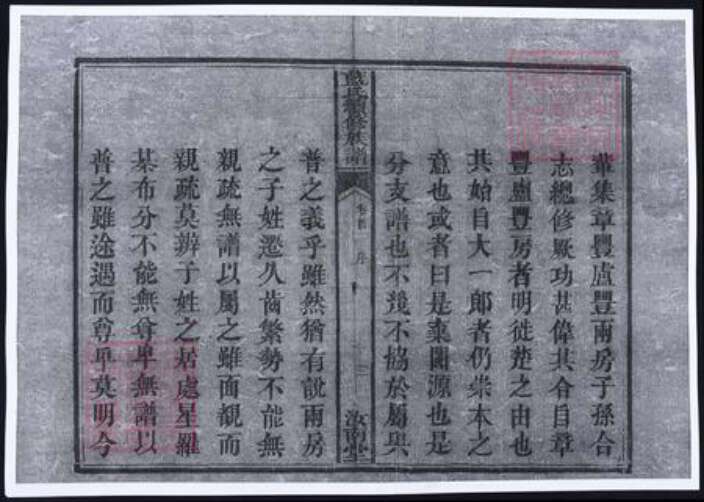 輩集章豐廬豐兩房子孫合
志總修厥功甚偉其合自章
豐廬豐房者明徙楚之由也
共始自大一郎者仍崇本之
意也或者曰是棄開源也是
分支譜也不幾不協於屬與
藍氏續修族譜
卷首 序
汝南堂
普之義乎雖然猶有說兩房
之子姓遷久齒繁勢不能無
親疏無譜以屬之雖面覿而
親疏莫辨子姓之居處星羅
棊布分不能無尊卑無譜以
普之雖途遇而尊卑莫明今